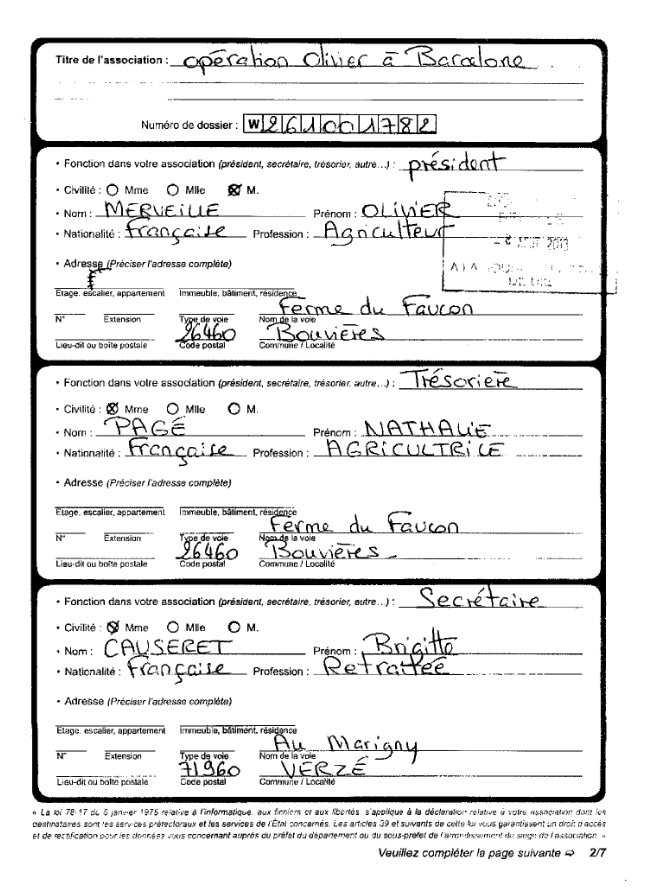 Titre de l'association : opération Olivier à Barcelone
Numéro de dossier : W261001782
• Fonction dans votre association (président, secrétaire, trésorier, autre...) : président
• Civilité : Mme Mlle M.
• Nom : MERVEILLE Prénom : OLIVIER
• Nationalité : Française Profession : Agriculteur
• Adresse (Préciser l'adresse complète)
Etage, escalier, appartement Immeuble, bâtiment, résidence
Ferme du Faucon
N° Extension Type de voie Nom de la voie
26460 Bouvières
Lieu-dit ou boîte postale Code postal Commune / Localité
• Fonction dans votre association (président, secrétaire, trésorier, autre...) : Trésorière
• Civilité : Mme Mlle M.
• Nom : PAGÉ Prénom : NATHALIE
• Nationalité : Française Profession : AGRICULTRICE
• Adresse (Préciser l'adresse complète)
Etage, escalier, appartement Immeuble, bâtiment, résidence
Ferme du Faucon
N° Extension Type de voie Nom de la voie
26460 Bouvières
Lieu-dit ou boîte postale Code postal Commune / Localité
• Fonction dans votre association (président, secrétaire, trésorier, autre...) : Secrétaire
• Civilité : Mme Mlle M.
• Nom : CAUSERET Prénom : Brigitte
• Nationalité : Française Profession : Retraitée
• Adresse (Préciser l'adresse complète)
Etage, escalier, appartement Immeuble, bâtiment, résidence
Au Marigny
N° Extension Type de voie Nom de la voie
71960 VERZÉ
Lieu-dit ou boîte postale Code postal Commune / Localité
« La loi 78-17 du 6 janvier 1978 relative à l'informatique, aux fichiers et aux libertés, s'applique à la déclaration relative à votre association dont les
destinataires sont les services préfectoraux et les services de l'État concernés. Les articles 39 et suivants de cette loi vous garantissent un droit d'accès
et de rectification pour les données vous concernant auprès du préfet du département ou du sous-préfet de l'arrondissement du siège de l'association. »
Veuillez compléter la page suivante ⇨ 2/7